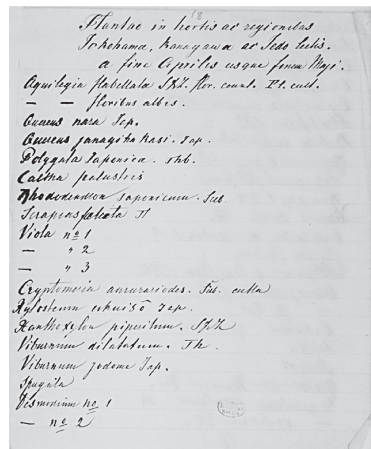 Plantae in hortis ac regionibus
Yokohama, Kanagawa ac Yedo lectis.
a fine Aprilis usque finem Maji.
Aquilegia flabellata S&Z. flor. coerul. Pl. cult.
— — floribus albis.
Quercus nara Jap.
Quercus janagi Jap.
Polygala Japonica. Thb.
Caltha palustris
Rhododendron Japonicum. Sur.
Serapias falcata Th
Viola no 1
— " 2
— " 3
Cryptomeria Sieb. culta
Xylosteum Jap.
Xanthoxylon piperitum. S&Z
Viburnum dilatatum. Th.
Viburnum jodome Jap.
Spergula
Desmodium no 1
— no 2